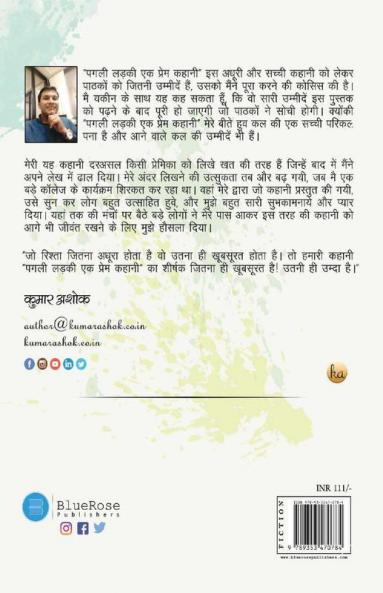 "पगली लड़की एक प्रेम कहानी" इस अधूरी और सच्ची कहानी को लेकर
पाठकों को जितनी उम्मीदें हैं, उसको मैंने पूरा करने की कोसिस की है।
मै यकीन के साथ यह कह सकता हूँ, कि वो सारी उम्मीदें इस पुस्तक
को पढ़ने के बाद पूरी हो जाएगी जो पाठकों ने सोची होगी। क्योंकी
"पगली लड़की एक प्रेम कहानी" मेरे बीते हुव कल की एक सच्ची परिकल
पना है और आने वाले कल की उम्मीदें भी हैं।
मेरी यह कहानी दरअसल किसी प्रेमिका को लिखे खत की तरह हैं जिन्हें बाद में मैंने
अपने लेख में ढाल दिया। मेरे अंदर लिखने की उत्सुकता तब और बढ़ गयी, जब मै एक
बड़े कॉलेज के कार्यक्रम शिरकत कर रहा था। वहां मेरे द्वारा जो कहानी प्रस्तुत की गयी,
उसे सुन कर लोग बहुत उत्साहित हुवे, और मुझे बहुत सारी सुभकामनायें और प्यार
दिया। यहां तक की मंचों पर बैठे बड़े लोगों ने मेरे पास आकर इस तरह की कहानी को
आगे भी जीवंत रखने के लिए मुझे हौसला दिया।
"जो रिश्ता जितना अधूरा होता है वो उतना ही खूबसूरत होता है। तो हमारी कहानी
"पगली लड़की एक प्रेम कहानी" का शीर्षक जितना ही खूबसूरत है! उतनी ही उम्दा है।"
कुमार अशोक
author@kumarashok.co.in
kumarashok.co.in
ka
INR 111/-
BlueRose
Publishers
FICTION
9 789353 470784
www.bluerosepublishers.com